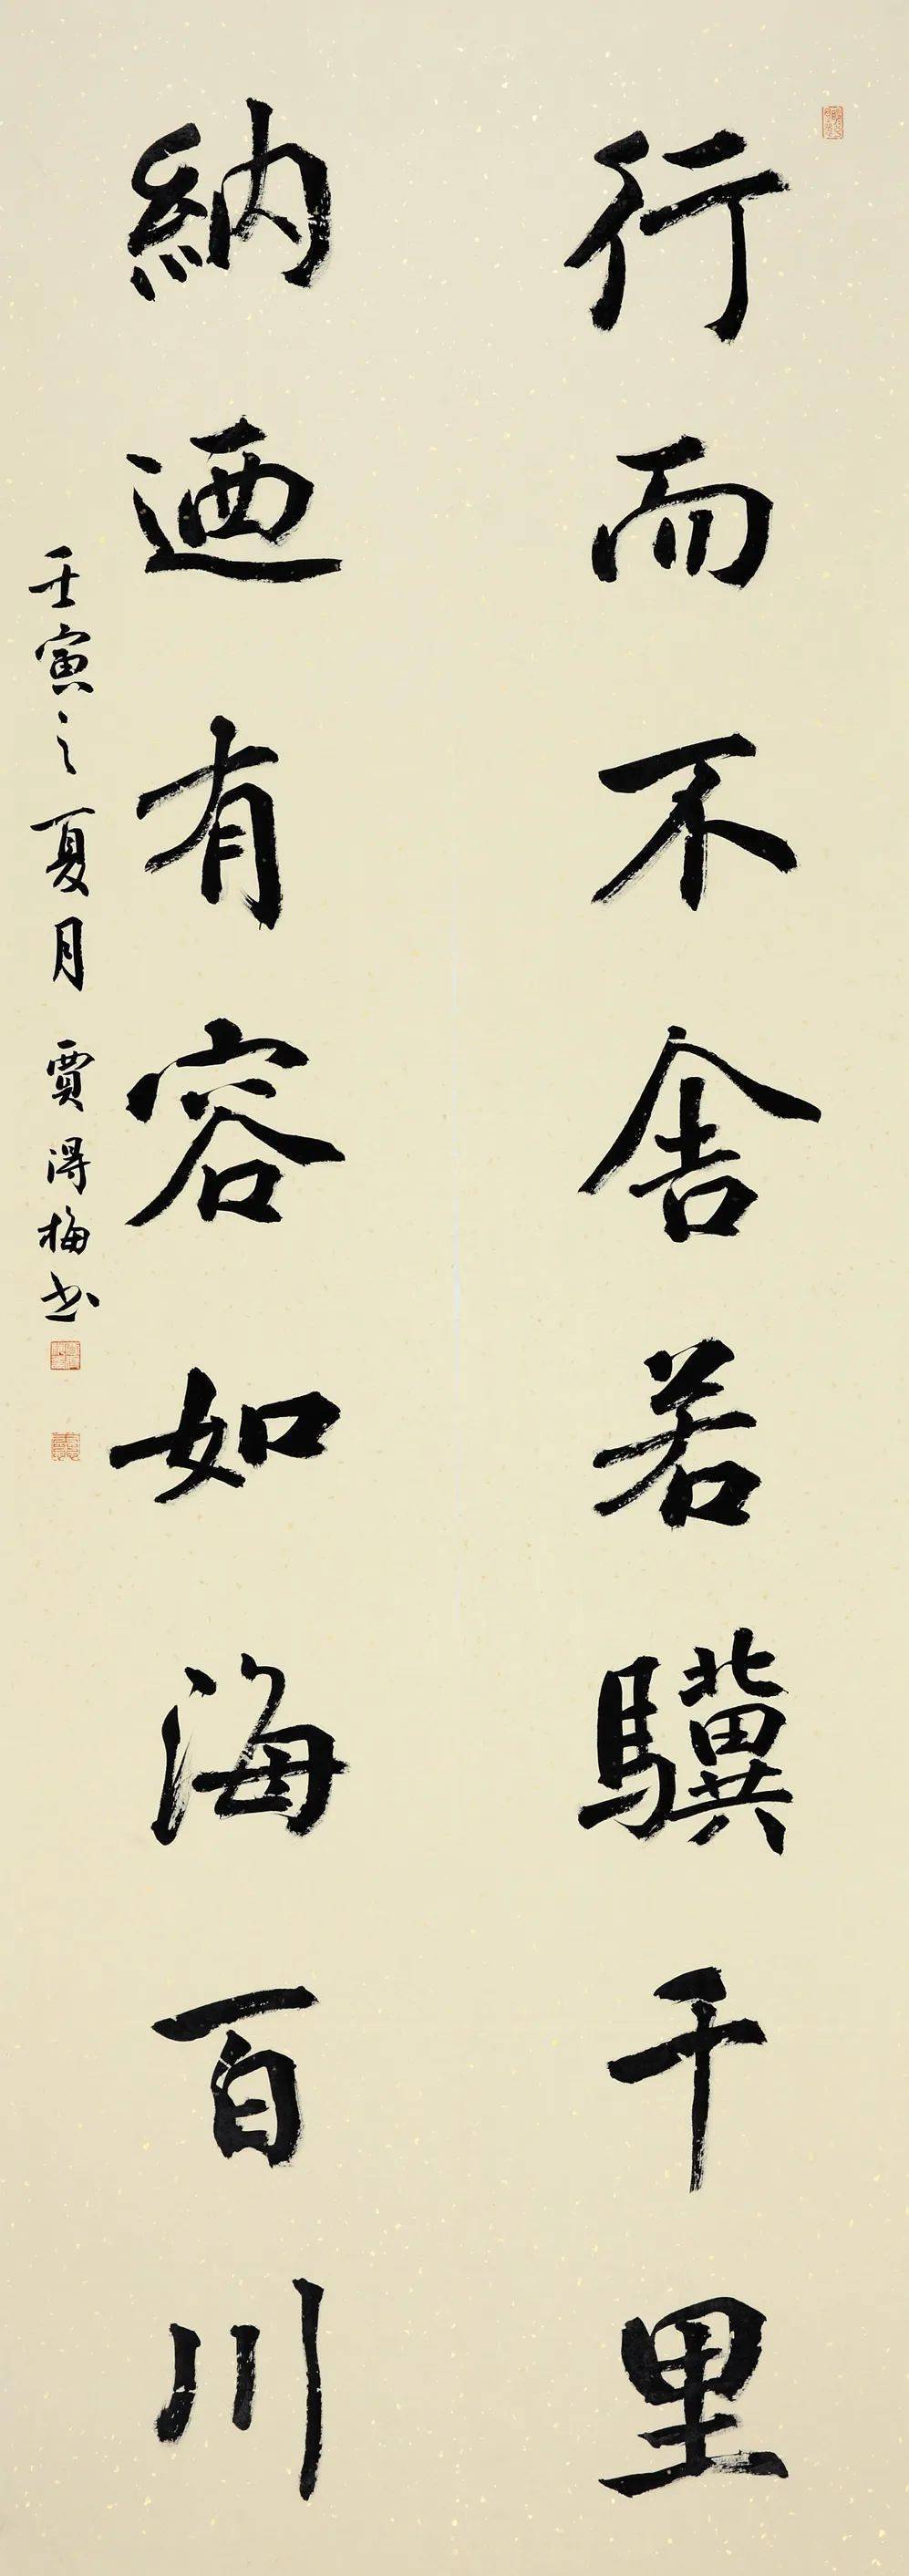 行而不舍若驥千里
納迺有容如海百川
壬寅之夏月 賈得梅书